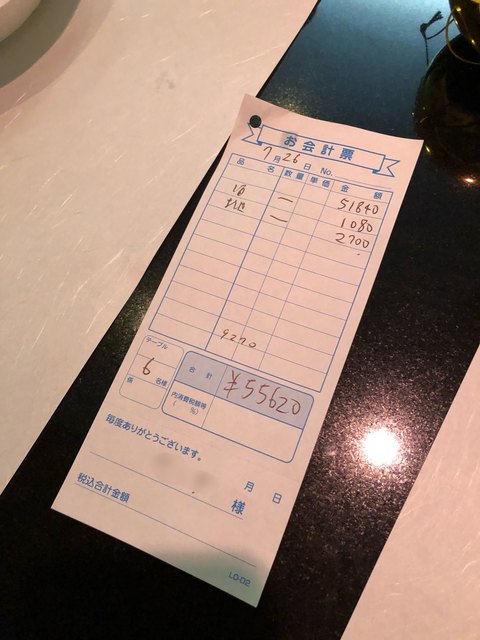 お会計票
7月26日 No.
品名 数量 単価 金額
51840
泊 一 1080
一 2700
9270
テーブル
6 名様
係
合計 ¥55620
内消費税額等
( %)
毎度ありがとうございます。
月 日
様
税込合計金額
LO-D2